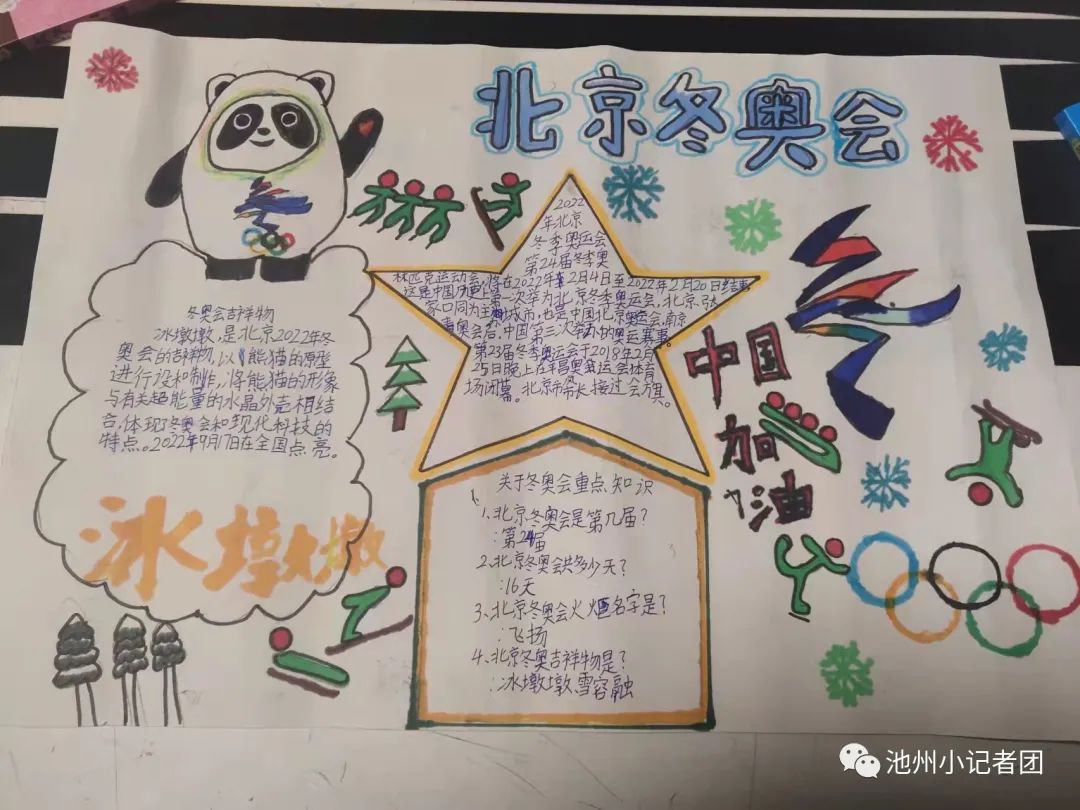 北京冬奥会
冬奥会吉祥物
冰墩墩,是北京2022年冬
奥会的吉祥物,以熊猫的原型
进行设和制作,将熊猫的形象
与有关超能量的水晶外壳相结
合,体现了冬奥会和现化科技的
特点。2022年9月17日在全国点亮。
冰墩墩
2022
年北京
冬季奥运会
第24届冬季奥
林匹克运动会,将在2022年2月4日至2022年2月20日结束
这是中国历史上第一次举为北京冬季奥运会,北京、张
家口同为主城市,也是中国北京奥运会,南京
青奥会后,中国第三次举办的奥运赛事。
第23届冬季奥运会于2018年2月
25日晚上在平昌奥运会体育
场闭幕。北京市市长接过会旗。
关于冬奥会重点知识
1、北京冬奥会是第几届?
:第24届
2、北京冬奥会共多少天?
:16天
3、北京冬奥会火炬名字是?
:飞扬
4、北京冬奥吉祥物是?
:冰墩墩,雪容融
中国
加
油
池州小记者团